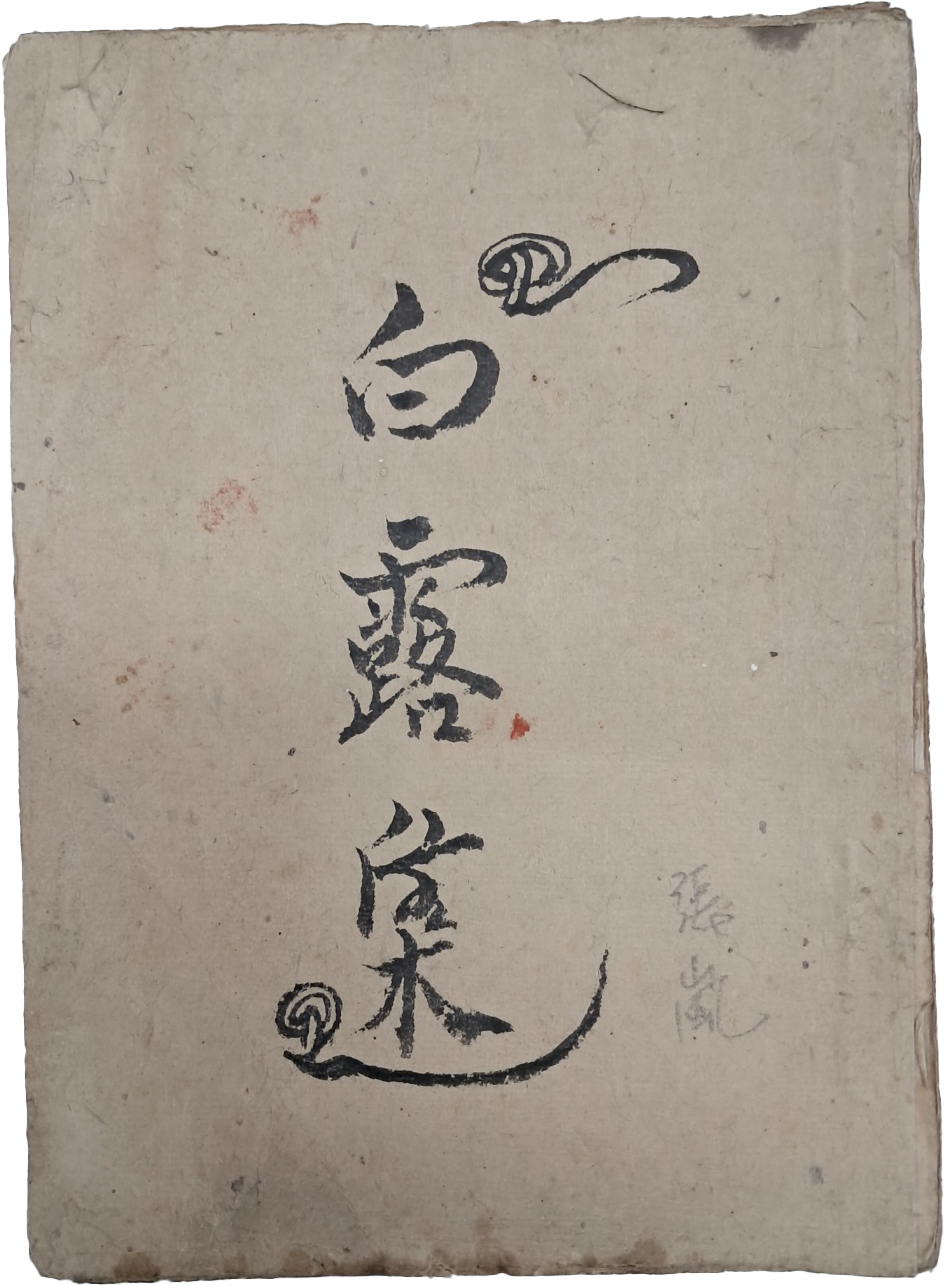 張嵐
白露集